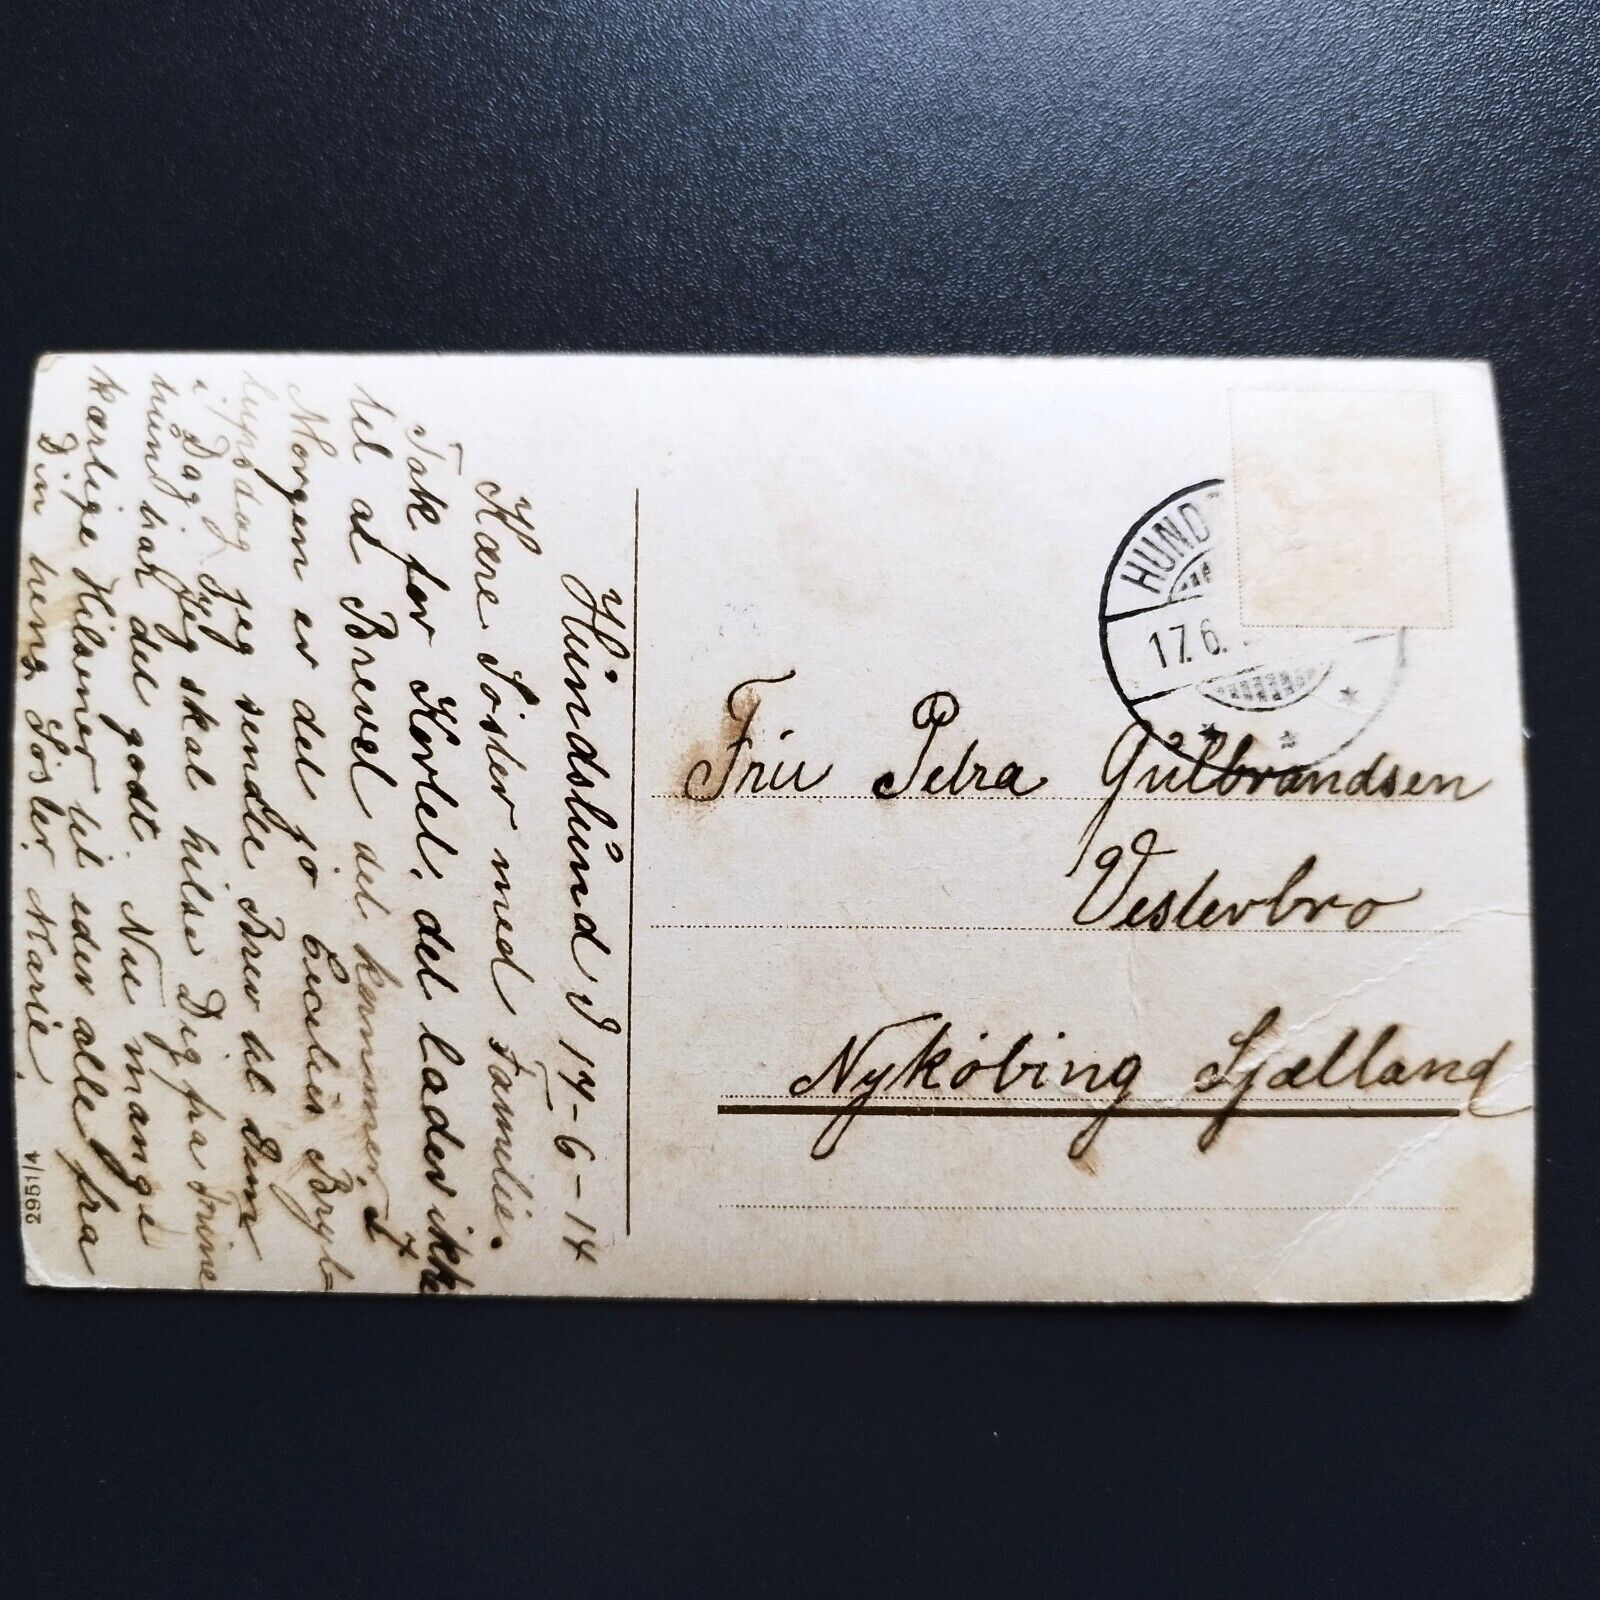 Hundslund d 17-6-14
Kære Søster med Familie.
Tak for Kortet, det lader ikke
til at Brevet det kommer. I
Morgen er det jo Bryl=
lupsdag jeg sendte Brev til Dem
i Dag. Jeg skal hilse Dig fra
hun har det godt. Nu mange
kærlige Hilsener til eder alle fra
Din heng. Søster Marie.
2951/4
HUND
17.6.
Fru Petra Gulbrandsen
Vesterbro
Nykøbing Sjælland